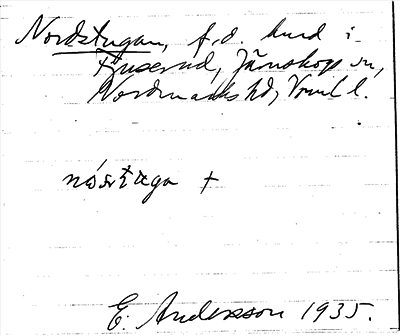 Nordstugan, f.d. hmd i
Tjuserud, Järnskogs sn,
Nordmarks hd, Vrml l.
nώșṭæga +
E. Andersson 1935.